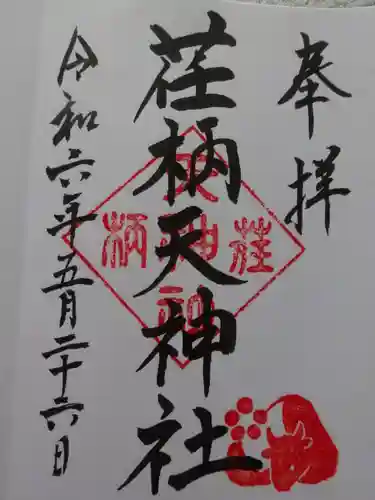 奉拝
荏柄天神社
令和六年五月二十六日
荏
柄
天神
社